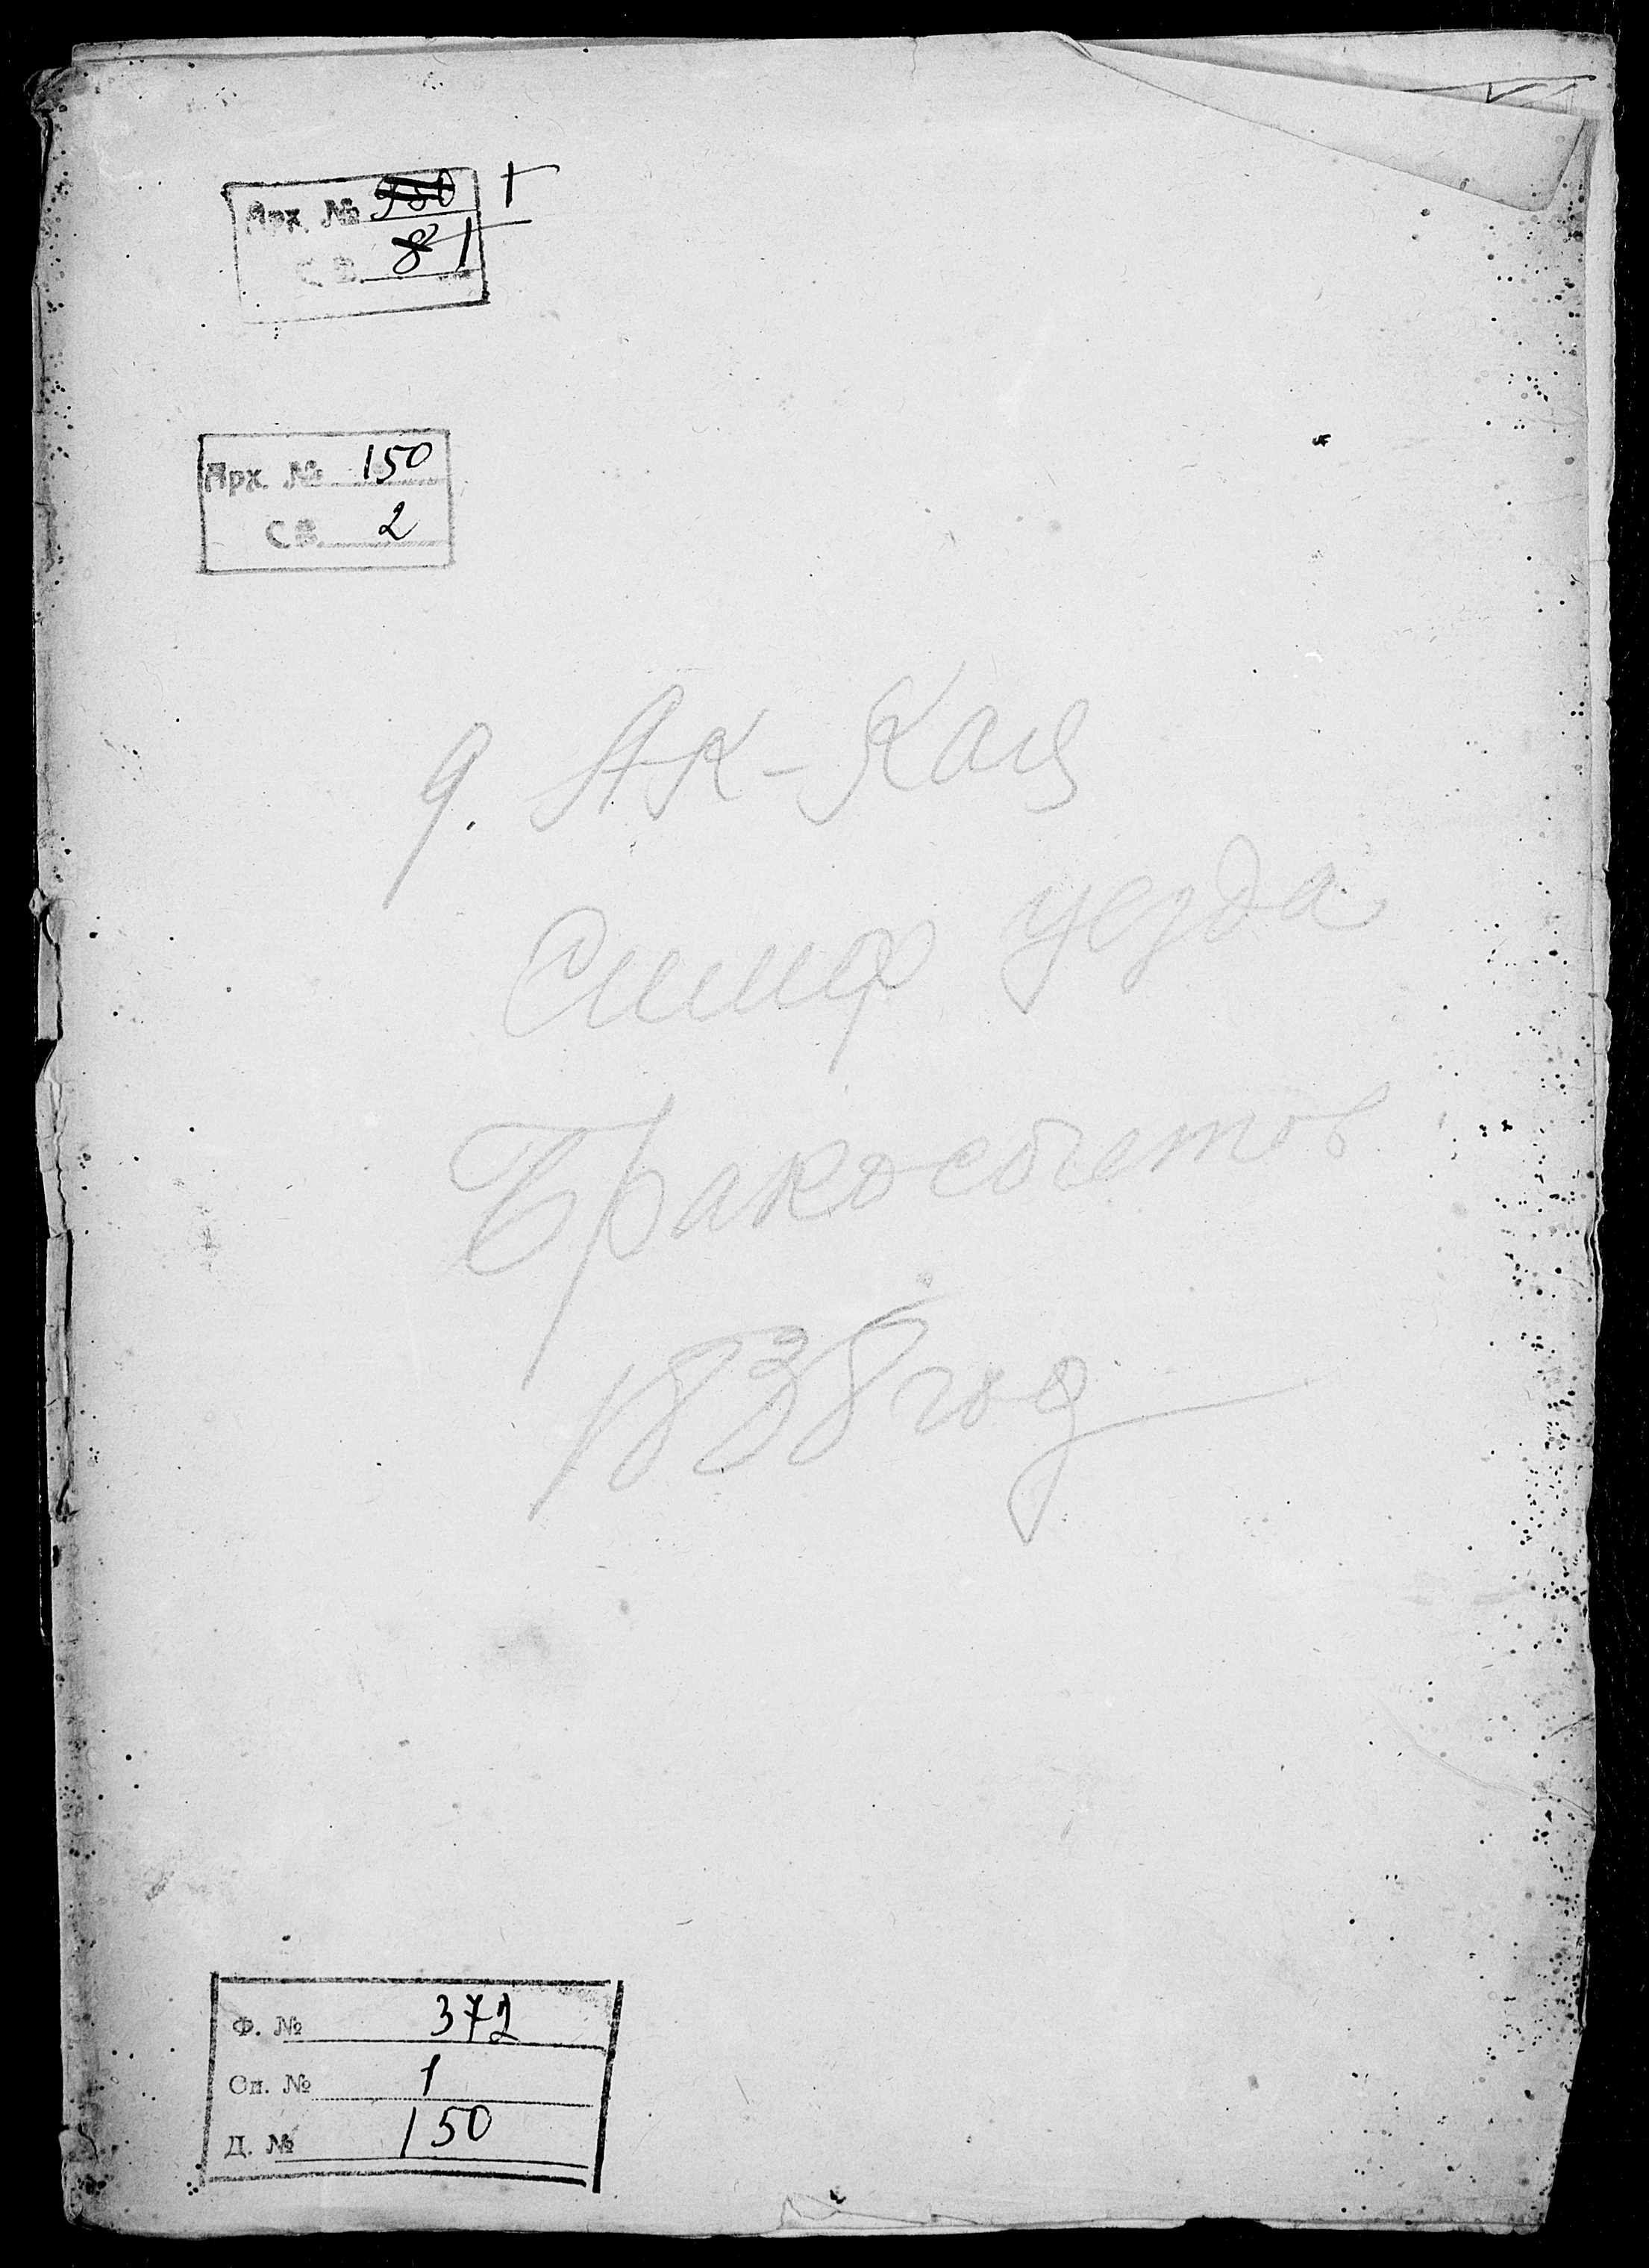 Арх. №
8 1
Св.
Арх. № 150
Св. 2
д. Ак-Кая
Симф уезда
Бракосочетов
1838 год
Ф. № 372
Оп. № 1
Д. № 150